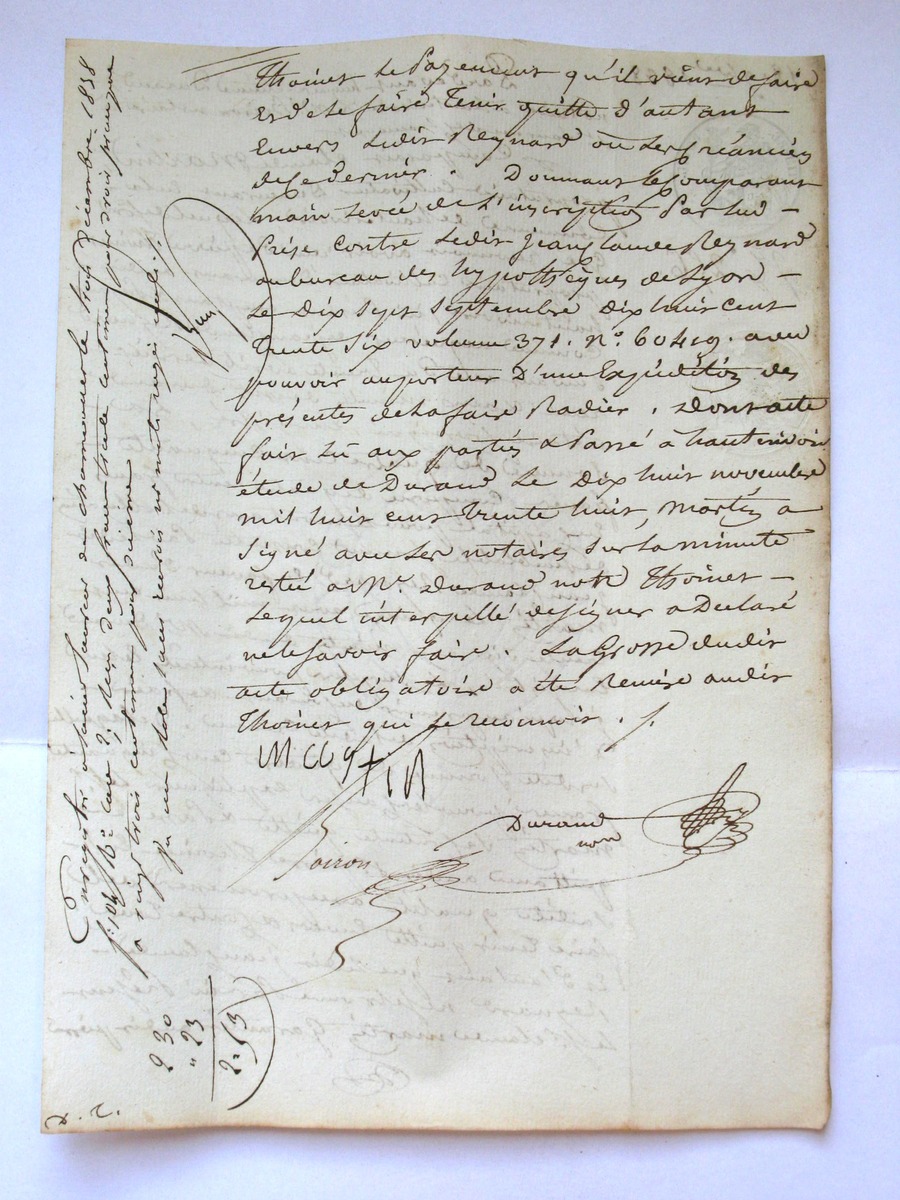 Thoinet le Payement qu'il vient de faire
Et de le faire Tenir quitte d'autant
Envers ledit Reynard ou les Créanciers
de ce dernier. Donnant le Comparant
main levée de l'inscription Par lui
Prise contre ledit jean claude Reynard
au bureau des hypothèques de Lyon
Le Dix sept septembre Dix huit cent
Trente six volume 371. n° 60419. avec
pouvoir au porteur D'une Expédition des
présentes de la faire Radier. Dont acte
fait lu aux parties & Passé à hauterivoir
étude de Durand Le Dix huit novembre
mil huit cent Trente huit, martin a
signé avec les notaires sur la minute
restée a Me. Durand notre Thoinet
Lequel interpellé de signer a Declaré
ne le savoir faire. La Grosse dudit
acte obligatoire a été Remise audit
Thoinet qui le reconnoit. /.
martin
Durand
notre
Boiron
Enregistré à saint Laurent de chamousset le trois Décembre 1838
f° 104 R° case 2; reçu deux francs trente centimes pour droit principal
& vingt trois centimes pour dixième
2 30
" 23
2=53
D. C.